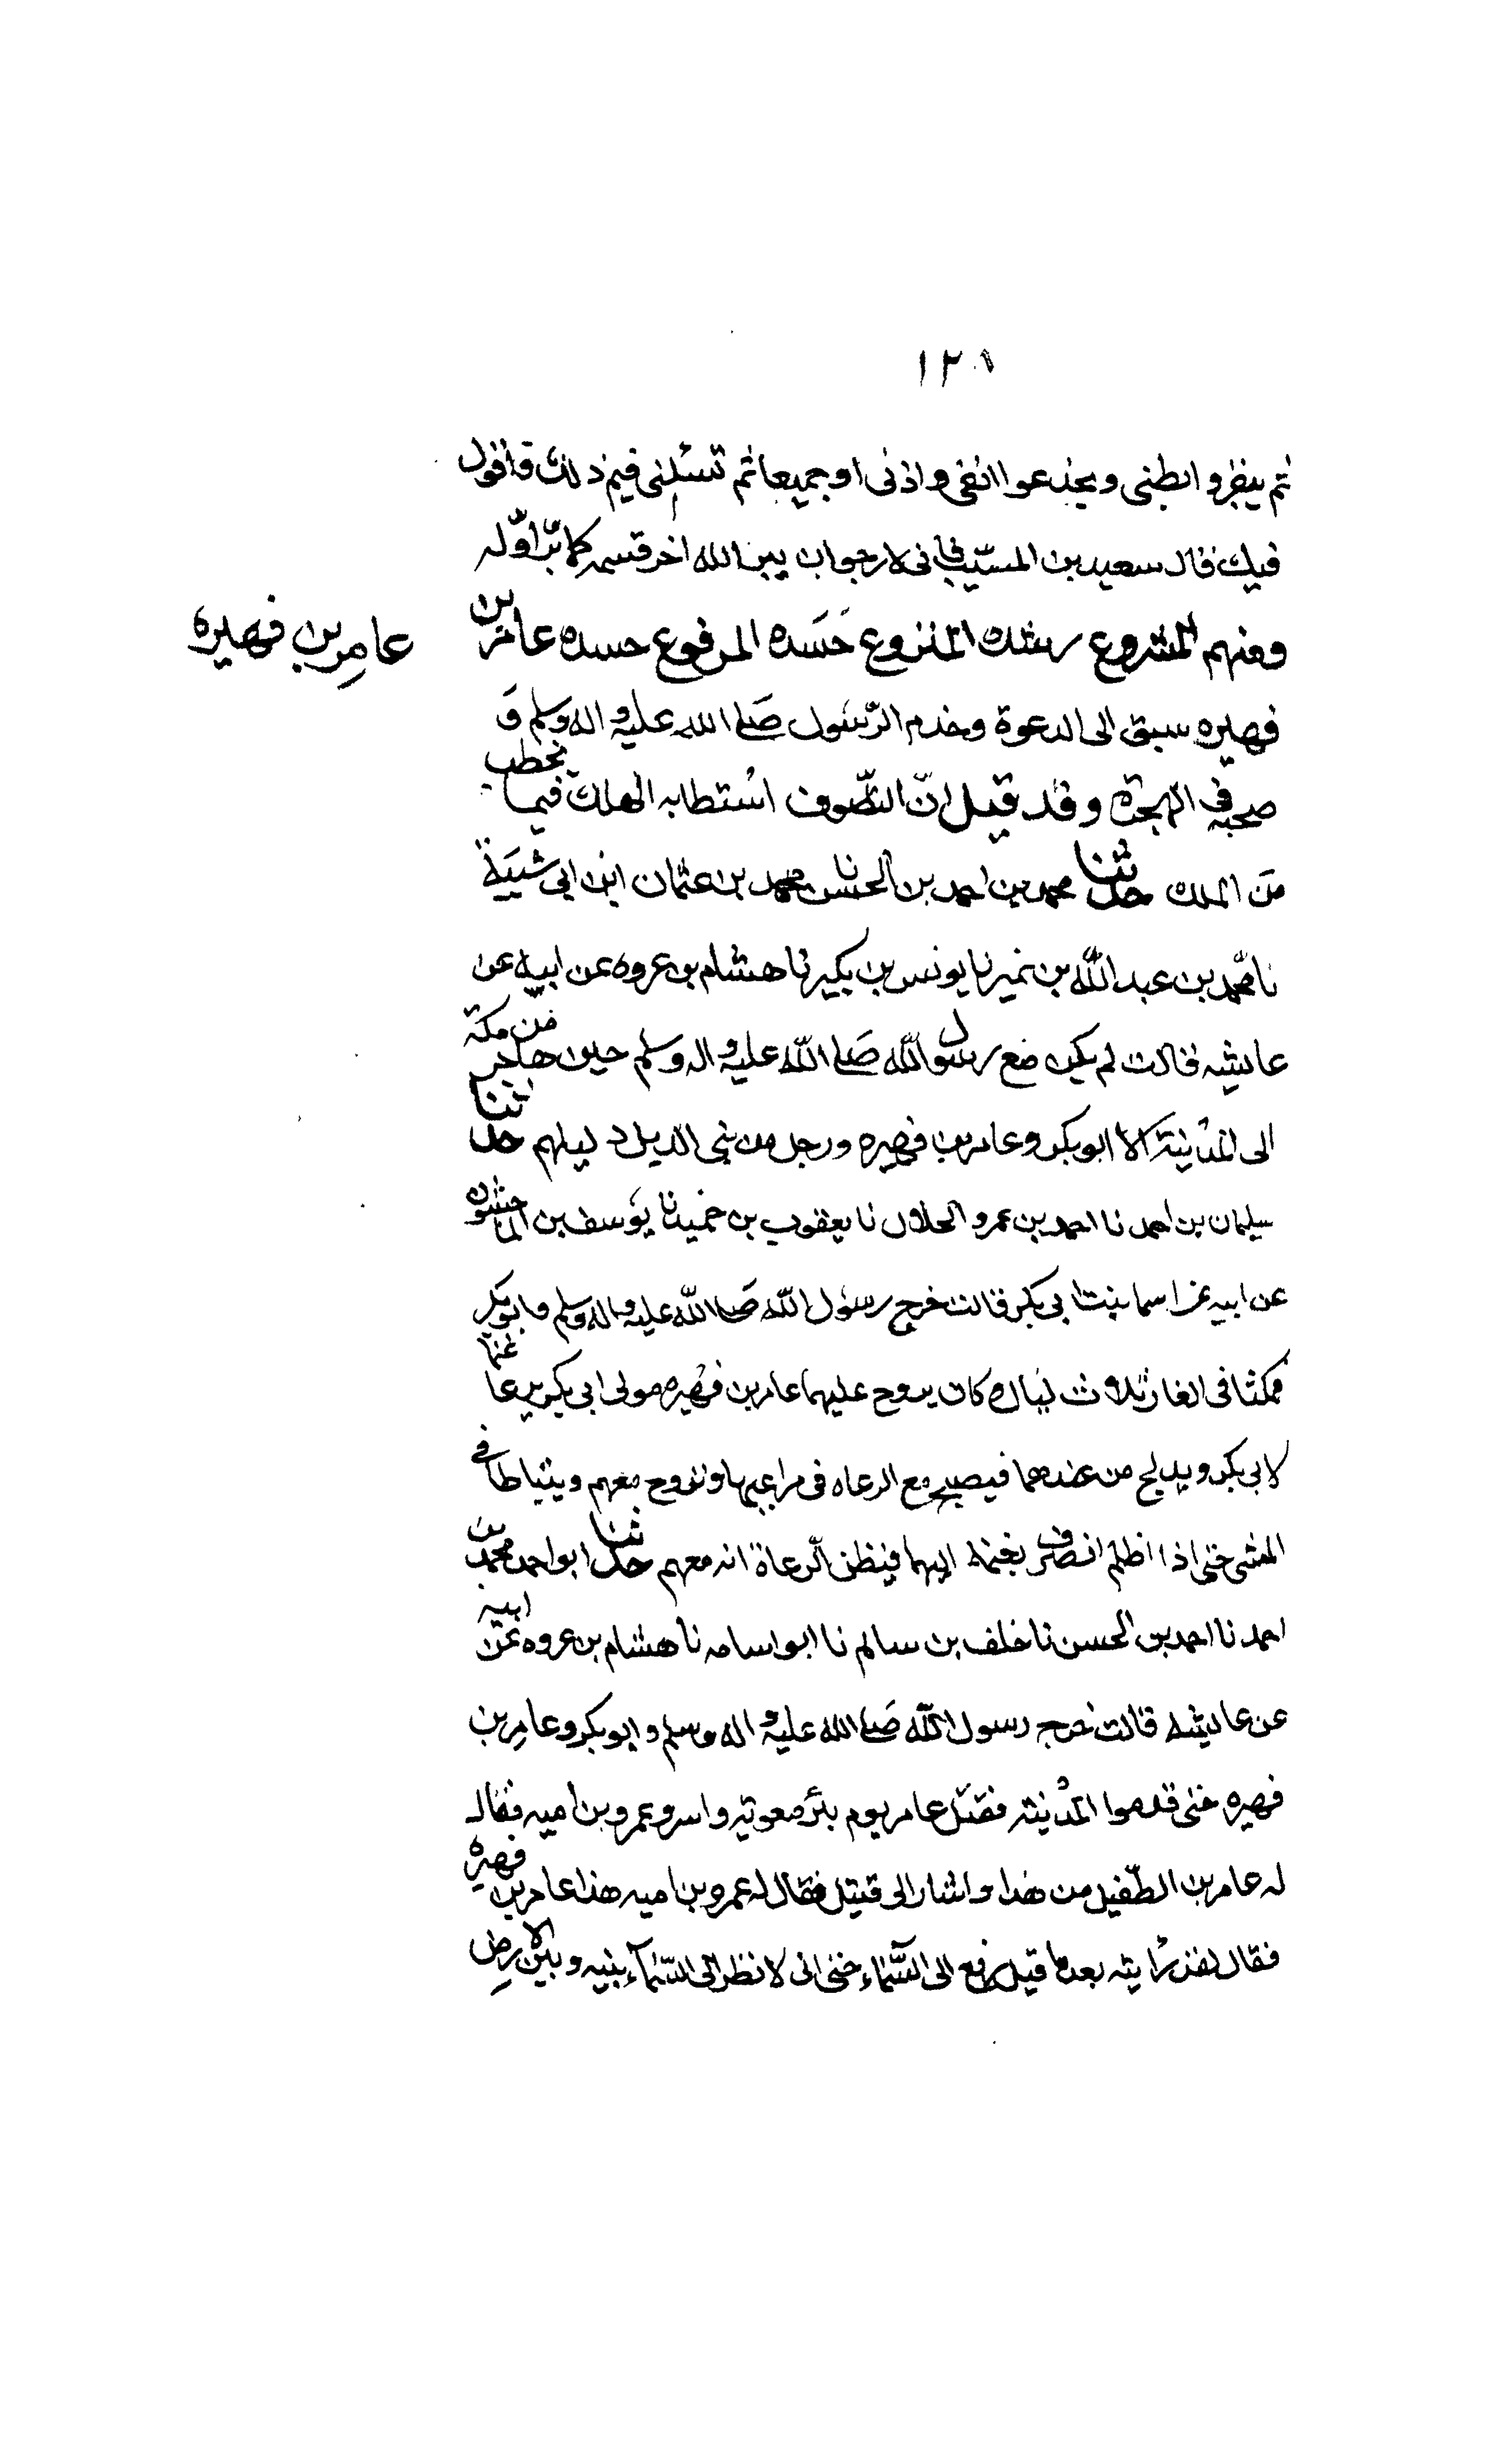 ١٢٨
ثم يبقروا بطنى ويجدعوا انفى واذنى اوجميعا ثم تسئلنى فيم ذلك فاقول
فيك قال سعيد بن المسيّب فانى لارجوا ان يبر الله اخر قسمه كما بّر اوّله
ومنهم المشروع رشده المنزوع حَسَده المرفوع جسده عامر بن
عامِر بن فهيره
فهيره سبق الى الدعوة وخدم الرّسُول صَلى الله عليه و اله وسلم وَ
صحبه فى الهجرة وقد قيل انّ التّصوف استطابه الهلك فيما يخطب
من الملك حدثنا محمد بن احمد بن الحسن نا محمد بن عثمان ابن ابى شيبَة
نا محّمد بن عبد اللّه بن نمير نا يونس بن بكير نا هشام بن عروه عن ابيه عن
عايشه قالت لم يكن مع رسول اللّه صَلى اللّه عليه و اله وسلم حين هاجر من مكة
الى المدينة الا ابو بكر وعامر بن فهيره ورجل من بنى الديل دليلهم حدثنا
سليمان بن احمد نا احمد بن عمرو الخلال نا يعقوب بن حميد نا يوسف بن الماجشون
عن ابيه عن اسما بنت ابى بكر قالت خرج رسول اللّه صَلى اللّه عليه و اله وسلم وابوبكر
فمكثا فى الغار ثلاث ليال وكان يروح عليهما عامر بن فهيره مولى ابى بكر يرعا غنما
لابى بكر ويدلج من عندهما فيصبح مع الرعاه فى مراعيها ويروح معهم ويتباطا فى
المشى حتى اذا اظلم انصرف بغنمه اليهما فيظن الّرعاة انه معهم حدثنا ابو احمد محمد بن
احمد نا احمد بن الحسن نا خلف بن سالم نا ابو اسامه نا هشام بن عروه عن ابيه
عن عايشه قالت خرج رسول اللّه صَلى الله عليه و اله وسلم وابو بكر وعامِر بن
فهيره حتى قدموا المدينه فقتل عامر يوم بئر معونه واسر عمرو بن اميه فقال
له عامر بن الطّفيل من هذا واشار الى قتيل فقال له عمرو بن اميه هذا عامر بن فهيرة
فقال لقد رايته بعد ما قتل رفع الى السّماء حتى انى لانظر الى السّمآء بينه وبين الارض